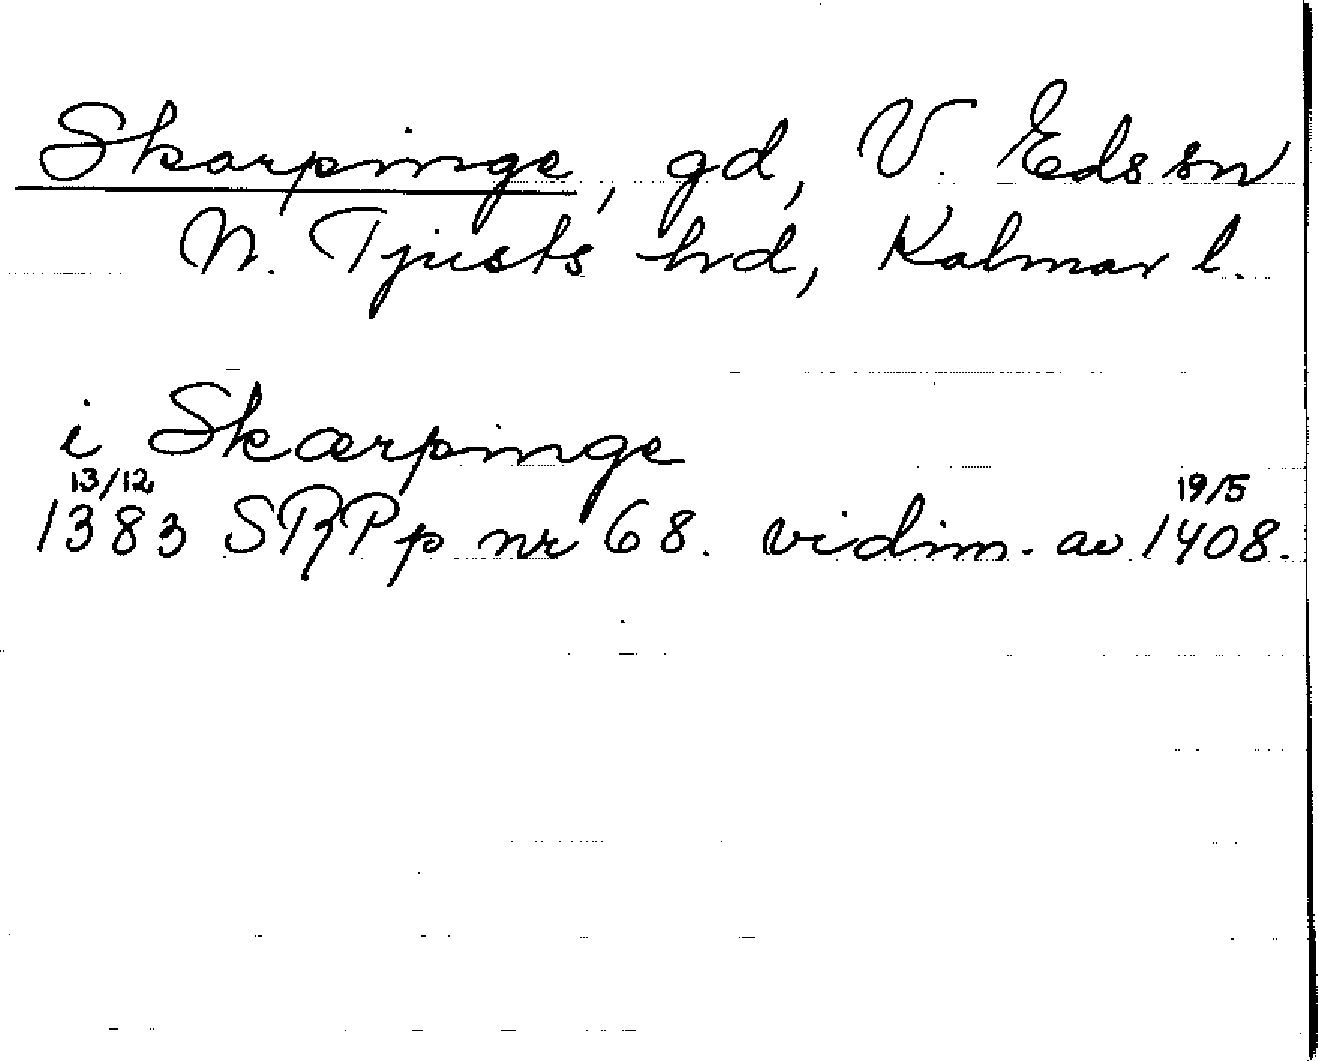 Skarpinge, gd, V. Eds sn
N. Tjusts hd, Kalmar l.
i Skærpinge
13/12 19/5
1383 SRPp nr 68. vidim. av 1408.